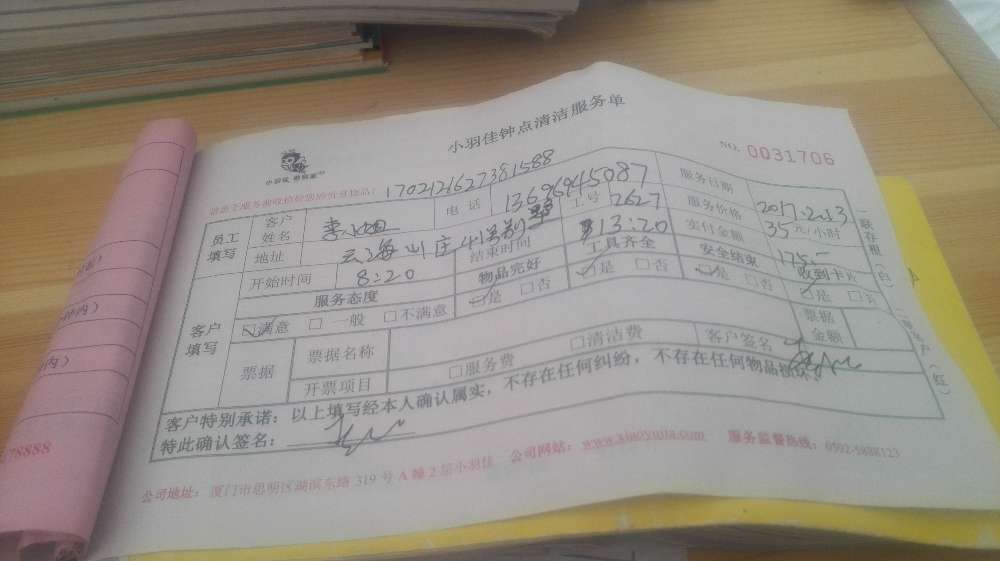 小羽佳钟点清洁服务单
小羽佳
NO. 0031706
1702121627381588
员工填写 客户姓名 电话 13696945087 服务日期 2017.2.13
地址 工号 2627 服务价格 35元/小时
开始时间 8:20 结束时间 13:20 实付金额 175.-
客户填写 服务态度 物品完好 工具齐全 安全结束 收到卡片
☑满意 □一般 □不满意 ☑是 □否 ☑是 □否 ☑是 □否 ☑是 □否
票据 票据名称 □服务费 □清洁费 客户签名 票据金额
开票项目
客户特别承诺:以上填写经本人确认属实,不存在任何纠纷,不存在任何物品损坏。
特此确认签名:
公司地址:厦门市思明区湖滨东路319号A幢2层小羽佳 公司网站:www.xiaoyujia.com 服务监督热线:0592-5888123
一联存根(白)
78888